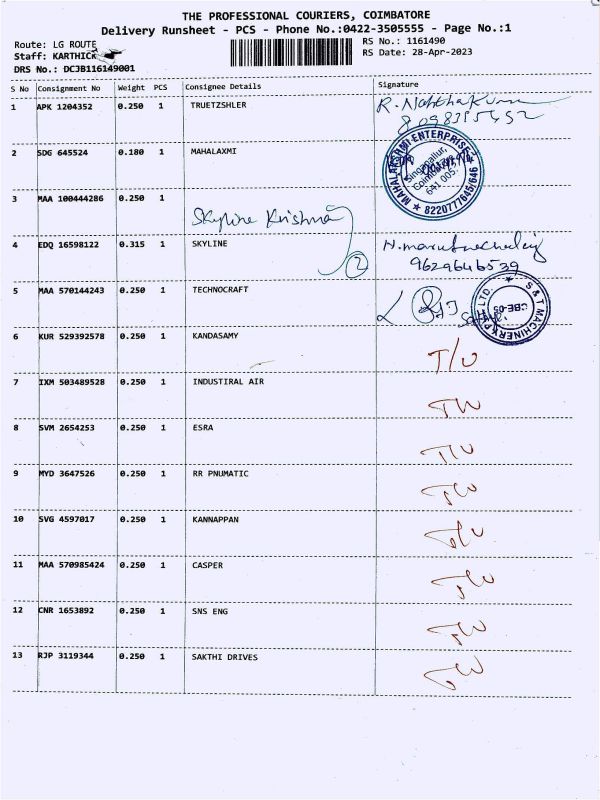 THE PROFESSIONAL COURIERS, COIMBATORE
Delivery Runsheet - PCS - Phone No.:0422-3505555 - Page No.:1
Route: LG ROUTE
RS No.: 1161490
Staff: KARTHICK
RS Date: 28-Apr-2023
DRS No.: DCJB116149001
S No Consignment No Weight PCS Consignee Details Signature
1 APK 1204352 0.250 1 TRUETZSHLER
2 SDG 645524 0.180 1 MAHALAXMI
MAHALAKSHMI ENTERPRISE
Singanallur,
Coimbatore
641 005.
8220777645/646
3 MAA 100444286 0.250 1
Skyline Krishna
4 EDQ 16598122 0.315 1 SKYLINE
2
9629646539
5 MAA 570144243 0.250 1 TECHNOCRAFT
S & T MACHINERY P LTD.
CBE-05
6 KUR 529392578 0.250 1 KANDASAMY T/W
7 IXM 503489528 0.250 1 INDUSTIRAL AIR T/W
8 SVM 2654253 0.250 1 ESRA T/W
9 MYD 3647526 0.250 1 RR PNUMATIC T/W
10 SVG 4597017 0.250 1 KANNAPPAN T/W
11 MAA 570985424 0.250 1 CASPER T/W
12 CNR 1653892 0.250 1 SNS ENG T/W
13 RJP 3119344 0.250 1 SAKTHI DRIVES T/W